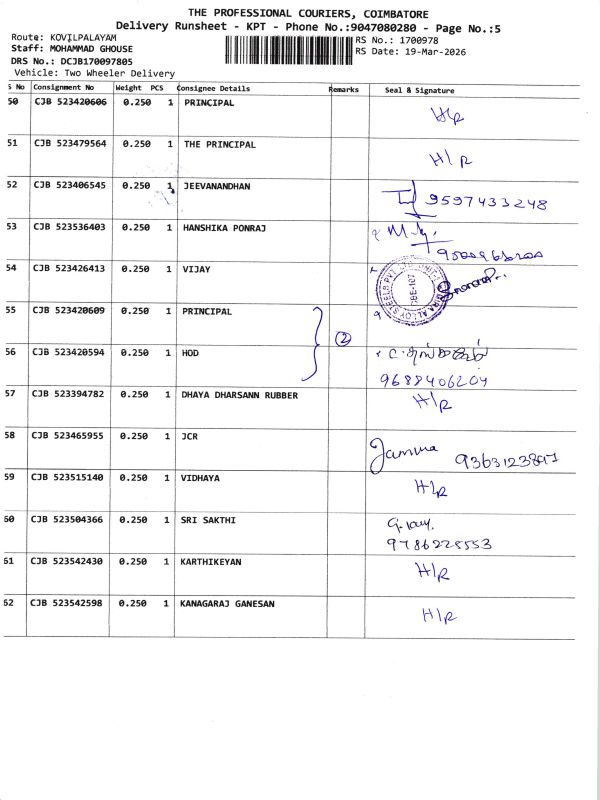 THE PROFESSIONAL COURIERS, COIMBATORE
Delivery Runsheet - KPT - Phone No.:9047080280 - Page No.:5
Route: KOVILPALAYAM
RS No.: 1700978
Staff: MOHAMMAD GHOUSE
RS Date: 19-Mar-2026
DRS No.: DCJB170097805
Vehicle: Two Wheeler Delivery
S No Consignment No Weight PCS Consignee Details Remarks Seal & Signature
50 CJB 523420606 0.250 1 PRINCIPAL H/R
51 CJB 523479564 0.250 1 THE PRINCIPAL H/R
52 CJB 523406545 0.250 1 JEEVANANDHAN 9597433248
53 CJB 523536403 0.250 1 HANSHIKA PONRAJ
54 CJB 523426413 0.250 1 VIJAY
55 CJB 523420609 0.250 1 PRINCIPAL
2
56 CJB 523420594 0.250 1 HOD
9688406204
57 CJB 523394782 0.250 1 DHAYA DHARSANN RUBBER H/R
58 CJB 523465955 0.250 1 JCR Jamuna
59 CJB 523515140 0.250 1 VIDHAYA H/R
60 CJB 523504366 0.250 1 SRI SAKTHI
9786228553
61 CJB 523542430 0.250 1 KARTHIKEYAN H/R
62 CJB 523542598 0.250 1 KANAGARAJ GANESAN H/R